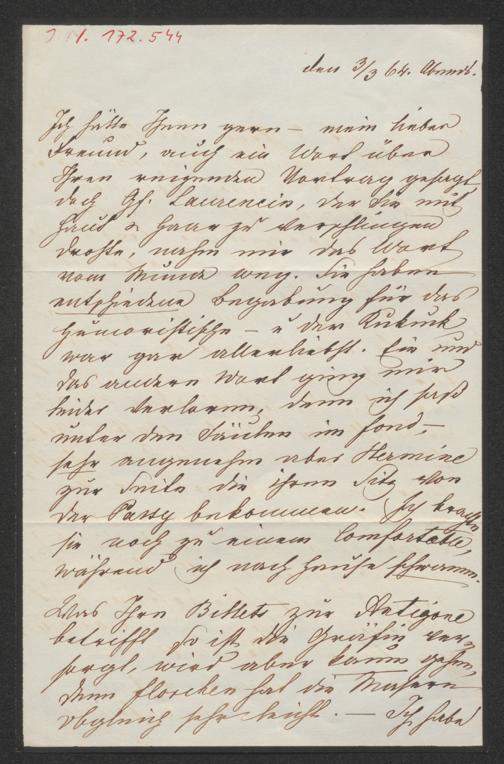 I N. 172.544
den 3/3 64. Abends.
Ich hätte Ihnen gern – mein lieber
Freund, auch ein Wort über
Ihren reizenden Vortrag gesagt,
doch Gf. Laurencin, der Sie mit
Haut & Haar zu verschlingen
drohte, nahm mir das Wort
vom Munde weg. Sie haben
entschiedene Begabung für das
Humoristische – u der Kukuck
war gar allerliebst. Ein und
das andere Wort ging mir
leider verloren, denn ich saß
unter den Säulen im Fond, –
sehr angenehm aber Hermine
zur Seite die ihren Sitz von
der Passy bekommen. Ich brachte
sie noch zu einem Comfortable,
während ich nach Hause schwamm.
Was Ihre Billets zur Antigone
betrifft so ist die Gräfin ver-
sorgt, wird aber kaum gehen,
denn Florchen hat die Masern
obgleich sehr leicht. – Ich habe